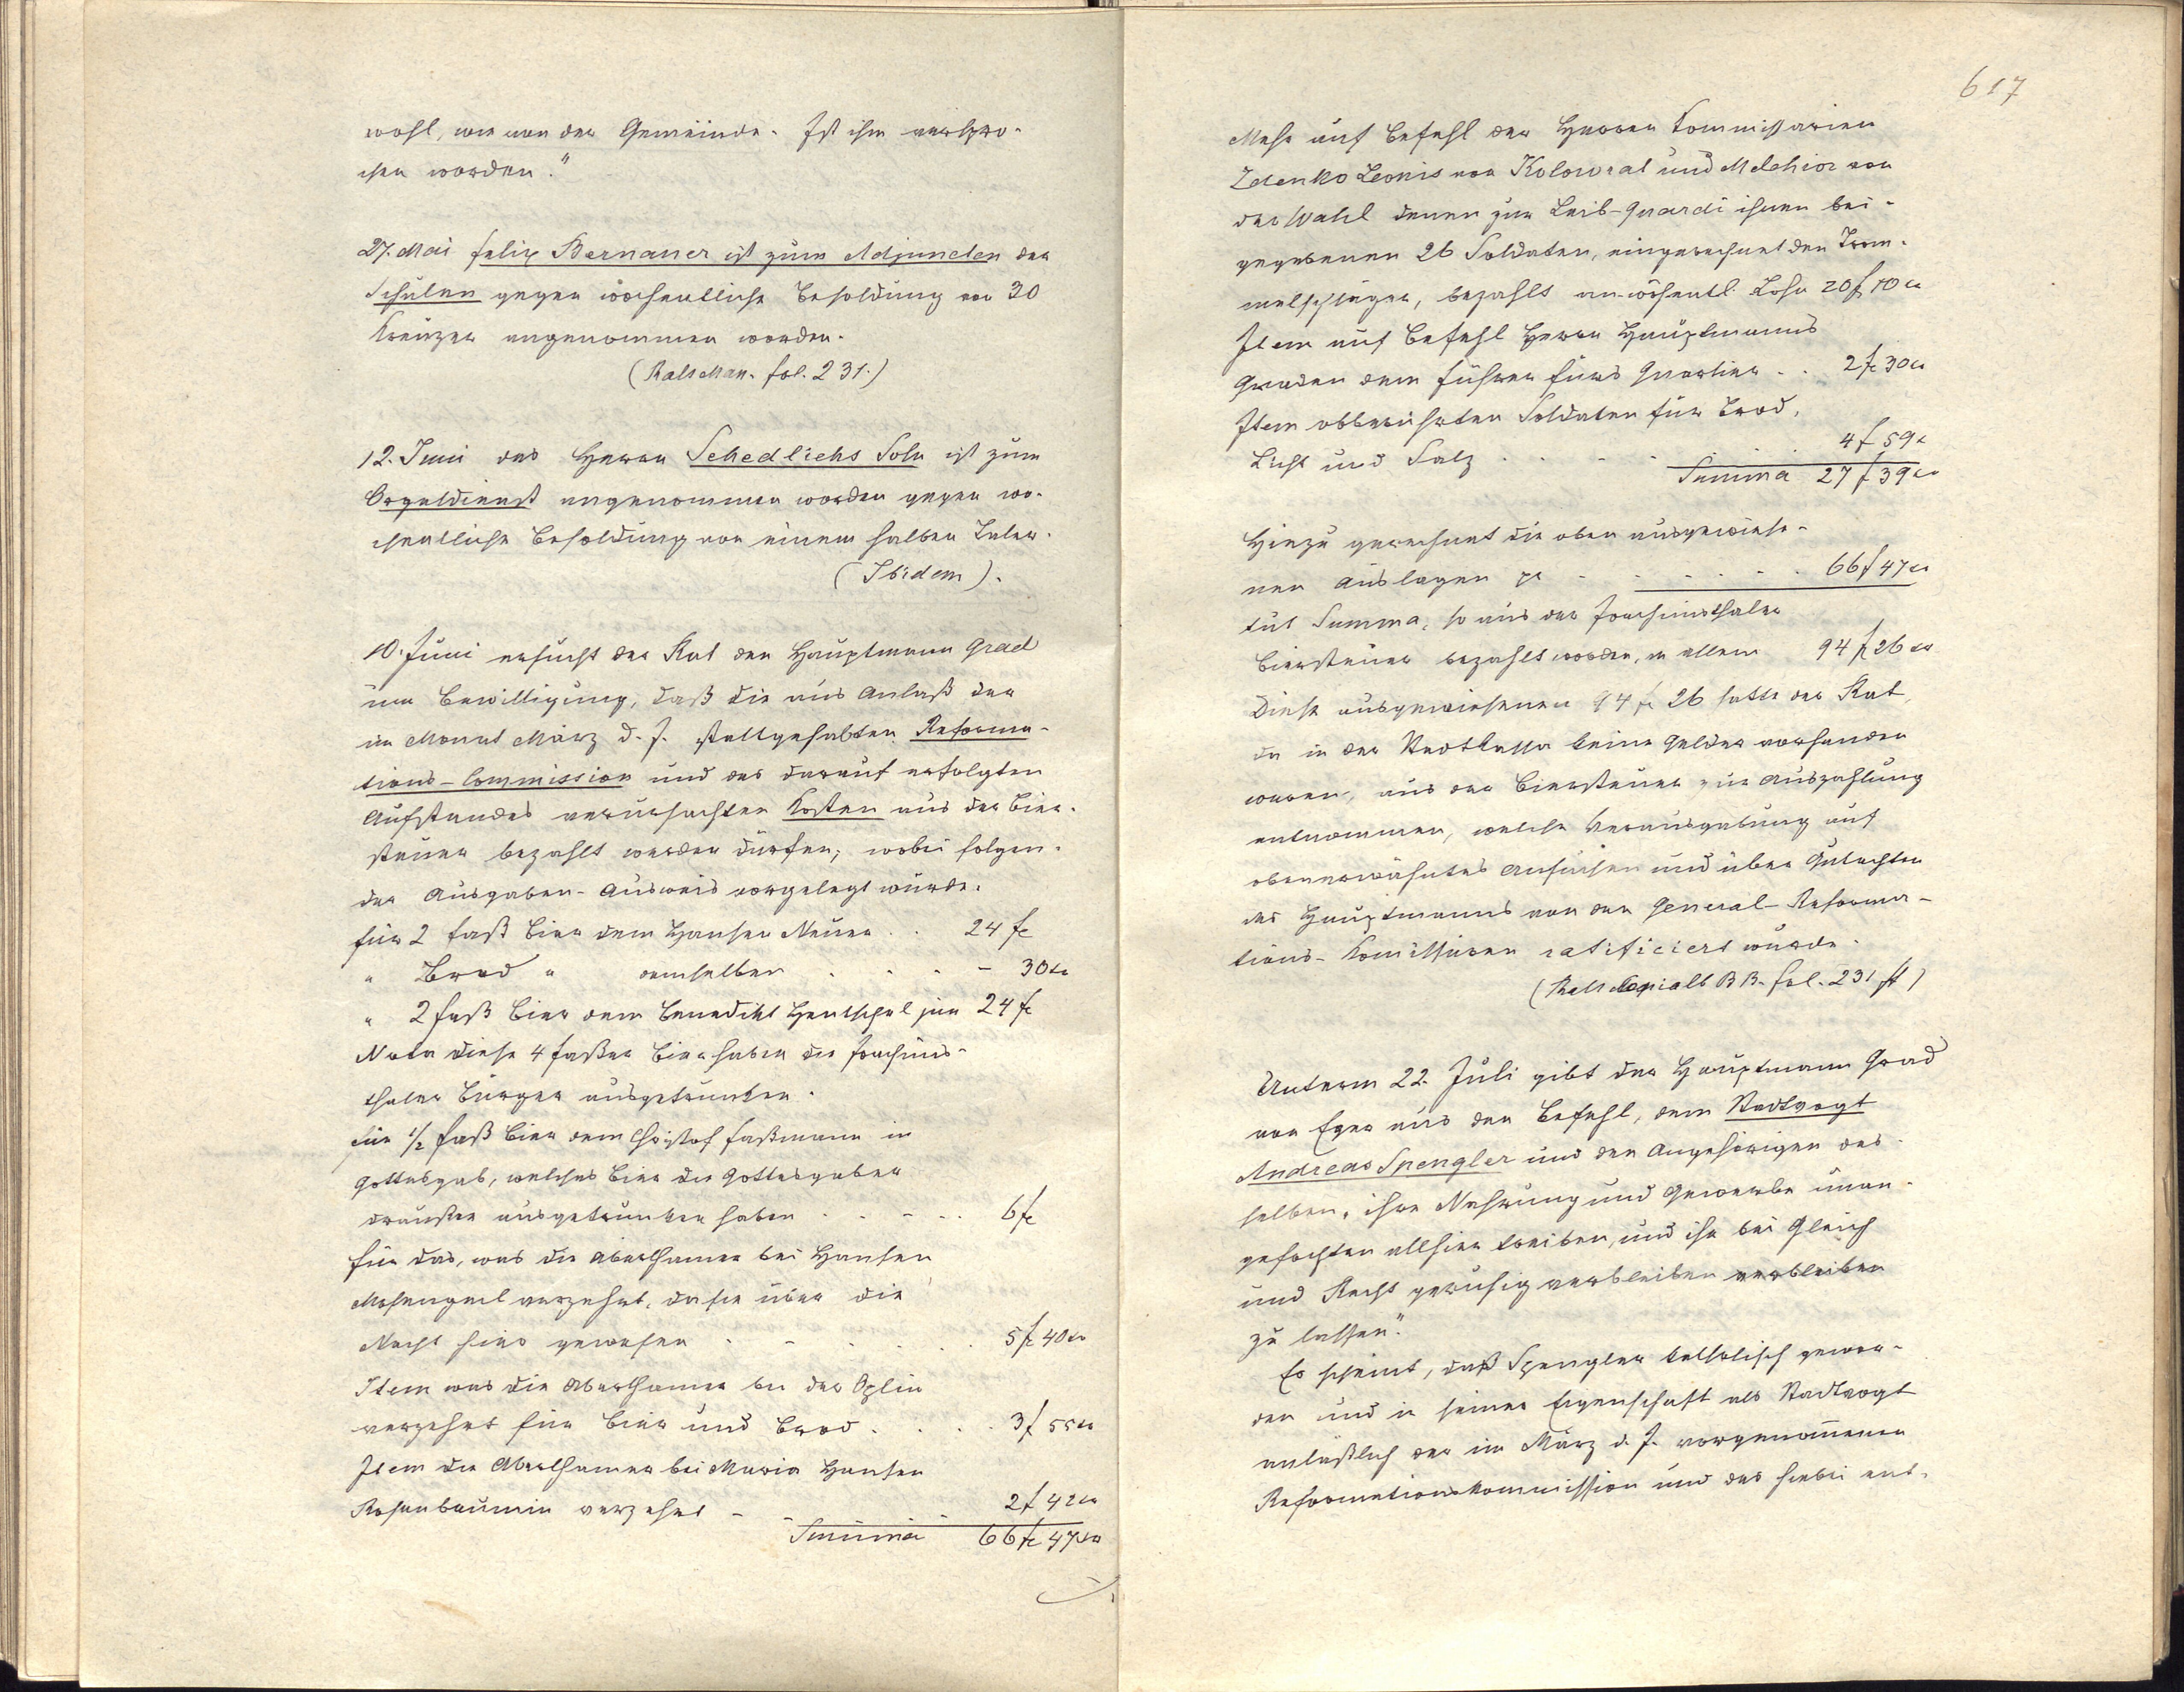 wohl, wie von der Gemeinde. Ist ihm verspro-
chen worden."
27. Mai Felix Bernauer ist zum Adjuncten der
Schulen gegen wöchentliche Besoldung von 30
Kreuzer angenommen worden.
(Rats Man. fol. 231.)
12. Juni des Herrn Schedlichs Sohn ist zum
Orgeldienst angenommen worden gegen wö-
chentliche Besoldung von einem halben Taler.
(Ibidem).
10. Juni ersucht der Rat den Hauptmann Grad
um Bewilligung, daß die aus Anlaß der
im Monat März d. J. stattgehabten Reforma-
tions-Commission und des darauf erfolgten
Aufstandes verursachten Kosten aus der Bier-
steuer bezahlt werden dürfen, wobei folgen-
der Ausgaben-Ausweis vorgelegt wurde.
für 2 Faß Bier dem Hansen Neuen . . 24 fl
" Brod " demselben . . . . - 30 kr
" 2 Faß Bier dem Benedikt Hentschel jun 24 fl
Nota diese 4 Faßer Bier haben die Joachims-
thaler Bürger ausgetrunken.
für 1/2 Faß Bier dem Christof Faßmann in
Gottesgab, welches Bier die Gottesgaber
draußen ausgetrunken haben . . . . . 6 fl
für das, was die Aberthamer bei Hansen
Mosengeil verzehrt, da sie über die
Nacht hier gewesen . . . . . 5 fl 40 kr
Item was die Aberthamer bei der Oplin
verzehrt für Bier und Brod . . . . 3 f 55 kr
Item die Aberthamer bei Maria Hansen
Rosenbaumin verzehrt - - . . 2 f 42 kr
Summa 66 fl 47 kr
617
Mehr auf Befehl der Herren Commissarien
Zdenko Leonis von Kolowrat und Melchior von
der Wahl denen zur Leib-Quardi ihnen bei-
gegebenen 26 Soldaten, eingerechnet den Trom-
melschläger, bezahlt an wöchentl. Lohn 20 f 10 kr
Item auf Befehl Herrn Hauptmanns
Graden dem Führer fürs Quartier . . 2 fl 30 kr
Item obberührten Soldaten für Brod,
Licht und Salz . . . . . 4 f 59 kr
Summa 27 f 39 kr
Hinzu gerechnet die oben ausgewiese-
nen Auslagen pr . . . . . . 66 f 47 kr
tut Summa, so aus der Joachimsthaler
Biersteuer bezahlt worden, in allem 94 fl 26 kr
Diese ausgewiesenen 94 fl 26 hatte der Rat,
da in der Stadtkassa keine Gelder vorhanden
waren, aus der Biersteuer zur Auszahlung
entnommen, welche Verausgabung auf
obenerwähntes Ansuchen und über Gutachten
des Hauptmanns von den General-Reforma-
tions-Komissären ratificiert wurde.
(Rats Copialb BB. fol. 231 ff)
Unterm 22. Juli gibt der Hauptmann Grad
von Eger aus den Befehl, dem Stadtvogt
Andreas Spengler und den Angehörigen des-
selben, ihre Nahrung und Gewerbe unan-
gefochten allhier treiben, und ihn bei Gleich
und Recht geruhig verbleiben verbleiben
zu lassen."
Es scheint, daß Spengler katholisch gewor-
den und in seiner Eigenschaft als Stadtvogt
anläßlich der im März d. J. vorgenommenen
Reformationskommission und des hiebei ent-